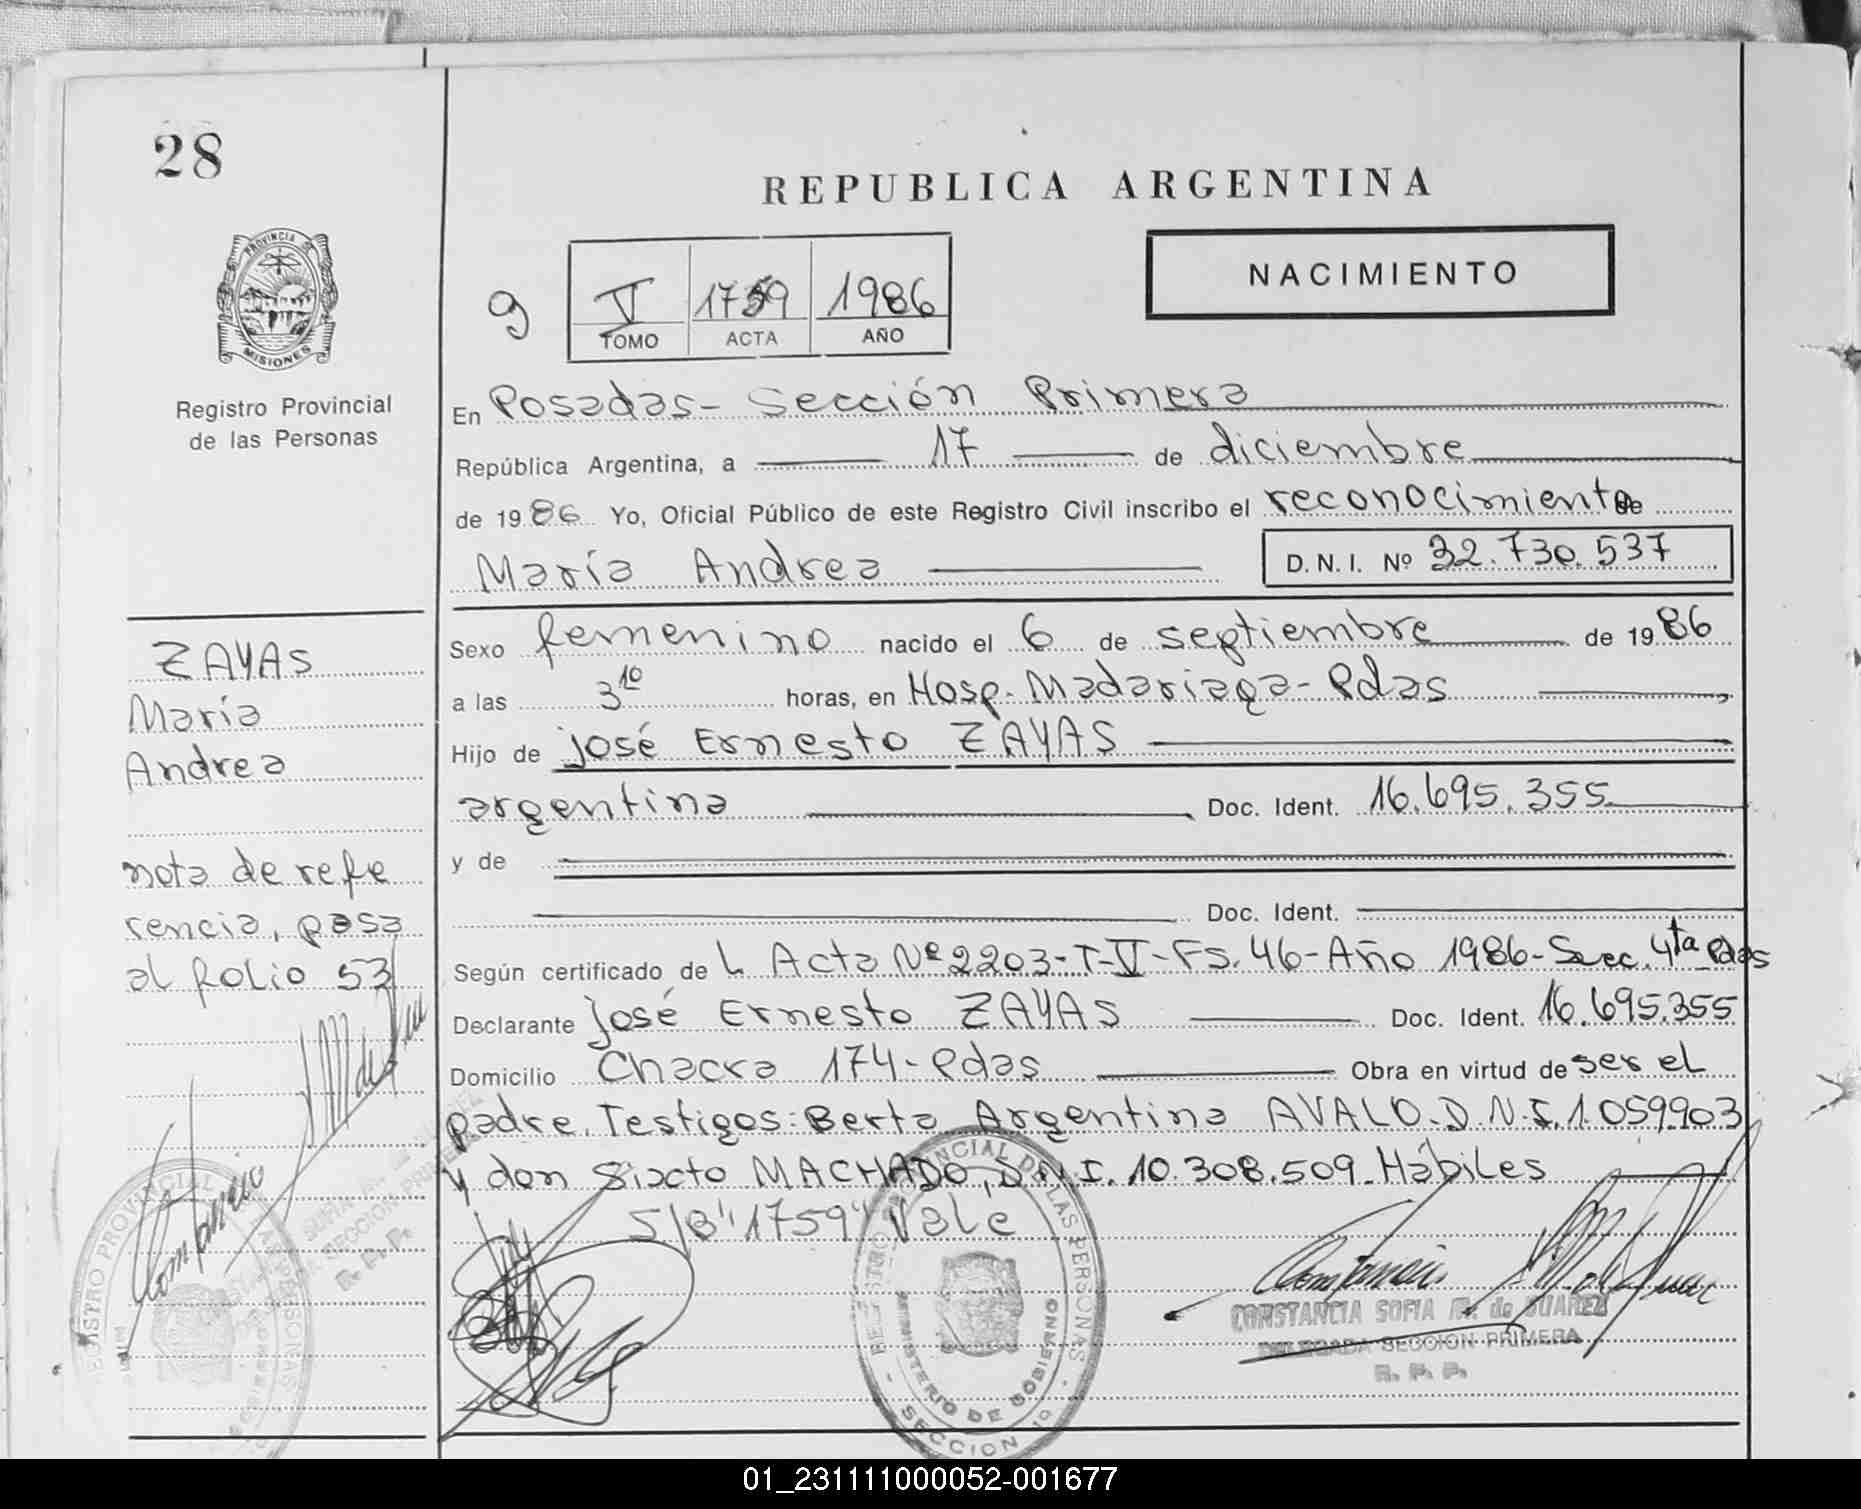 28
REPUBLICA ARGENTINA
PROVINCIA DE
MISIONES
NACIMIENTO
9
V 1759 1986
TOMO ACTA AÑO
Registro Provincial
de las Personas
En Posadas - Sección Primera
República Argentina, a 17 de diciembre
de 1986 Yo, Oficial Público de este Registro Civil inscribo el reconocimiento de
María Andrea D.N.I. Nº 32.730.537
Sexo femenino nacido el 6 de septiembre de 1986
a las 3 10 horas, en Hosp. Madariaga - Pdas
Hijo de josé Ernesto ZAYAS
argentina Doc. Ident. 16.695.355
y de
Doc. Ident.
Según certificado de L Acta Nº 2203-T-V-Fs. 46-Año 1986-Secc. 4ta Pdas
Declarante josé Ernesto ZAYAS Doc. Ident. 16.695.355
Domicilio Chacra 174 - Pdas Obra en virtud de ser el
padre. Testigos: Berta Argentina AVALO. D.N.I. 1.059.903
y don Sixto MACHADO, D.N.I. 10.308.509. Hábiles
S/B "1759" Vale
ZAYAS
María
Andrea
nota de refe
rencia, pasa
al folio 53
REGISTRO PROVINCIAL DE LAS PERSONAS
MINISTERIO DE GOBIERNO
SECCION 1º
CONSTANCIA SOFIA M. de SUAREZ
DELEGADA SECCION PRIMERA
R. P. P.
01_231111000052-001677